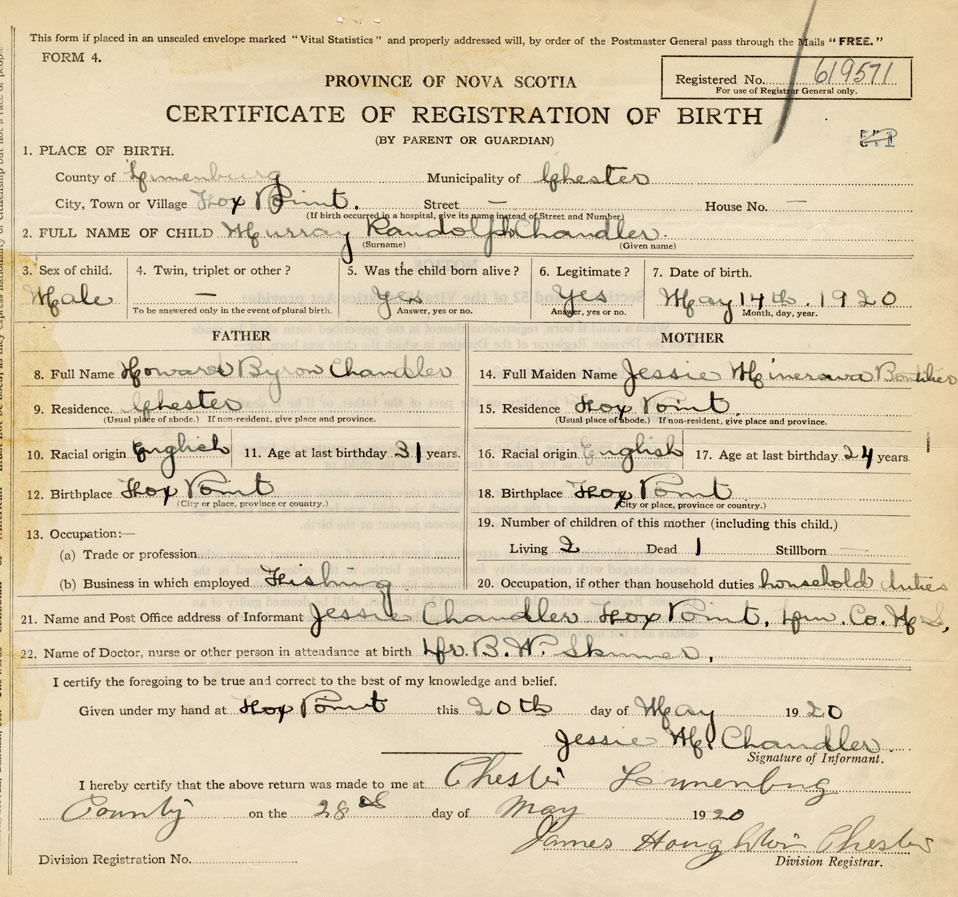 This form if placed in an unsealed envelope marked "Vital Statistics" and properly addressed will, by order of the Postmaster General pass through the Mails "FREE."
FORM 4.
Registered No. 619571
For use of Registrar General only.
PROVINCE OF NOVA SCOTIA
CERTIFICATE OF REGISTRATION OF BIRTH
(BY PARENT OR GUARDIAN)
1. PLACE OF BIRTH.
County of Lunenburg Municipality of Chester
City, Town or Village Fox Point. Street — House No. —
(If birth occurred in a hospital, give its name instead of Street and Number)
2. FULL NAME OF CHILD Murray Randolph Chandler.
(Surname) (Given name)
3. Sex of child. 4. Twin, triplet or other? 5. Was the child born alive? 6. Legitimate? 7. Date of birth.
Male — Yes Yes May 14th. 1920
To be answered only in the event of plural birth. Answer, yes or no. Answer, yes or no. Month, day, year.
FATHER MOTHER
8. Full Name Howard Byron Chandler 14. Full Maiden Name Jessie Minerava
9. Residence. Chester 15. Residence Fox Point.
(Usual place of abode.) If non-resident, give place and province. (Usual place of abode.) If non-resident, give place and province.
10. Racial origin English 11. Age at last birthday 31 years. 16. Racial origin English 17. Age at last birthday 24 years.
12. Birthplace Fox Point 18. Birthplace Fox Point
(City or place, province or country.) (City or place, province or country.)
13. Occupation:— 19. Number of children of this mother (including this child.)
(a) Trade or profession Living 2 Dead 1 Stillborn —
(b) Business in which employed Fishing 20. Occupation, if other than household duties household duties
21. Name and Post Office address of Informant Jessie Chandler Fox Point, Lun. Co. N S,
22. Name of Doctor, nurse or other person in attendance at birth Dr. B. W. Skinner,
I certify the foregoing to be true and correct to the best of my knowledge and belief.
Given under my hand at Fox Point this 20th day of May 1920
Jessie M. Chandler.
Signature of Informant.
I hereby certify that the above return was made to me at Chester Lunenburg
County on the 28 day of May 1920
James Houghton Chester
Division Registration No. Division Registrar.